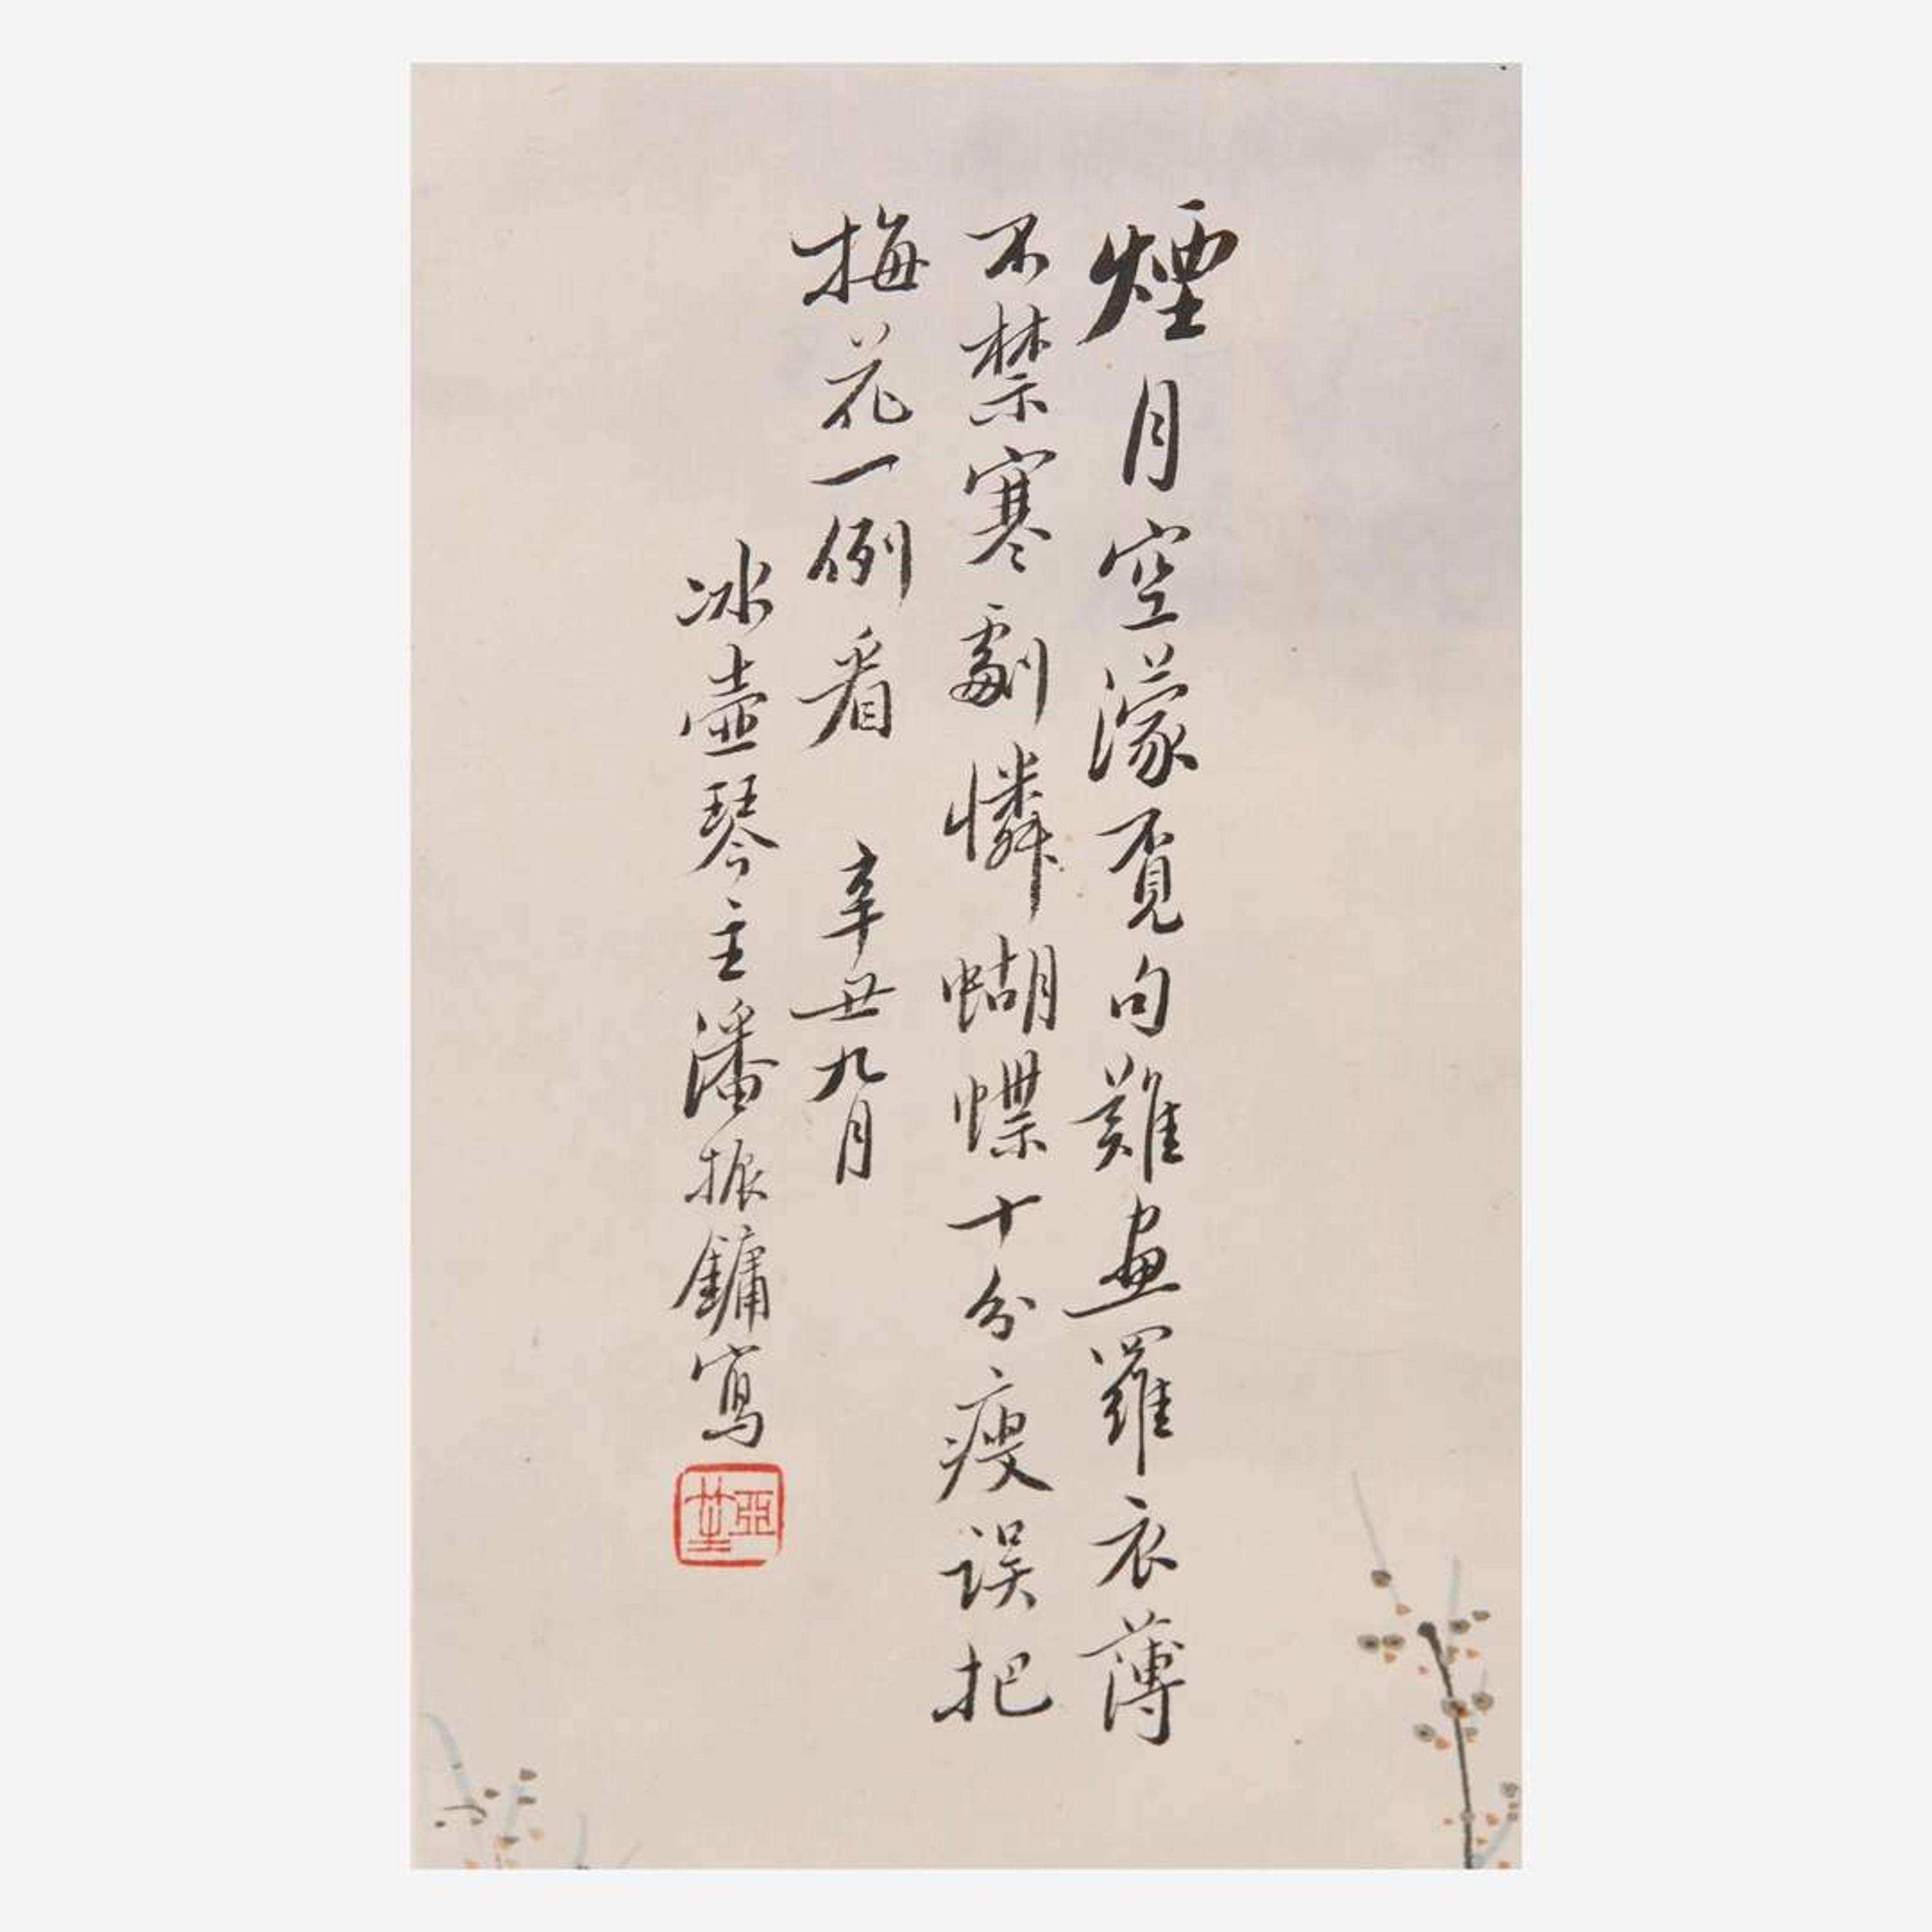 煙月空濛覔句難畫羅衣薄
不禁寒劇憐蝴蝶十分瘦误把
梅花一例看 辛丑九月
冰壺琴主潘振鏞寫